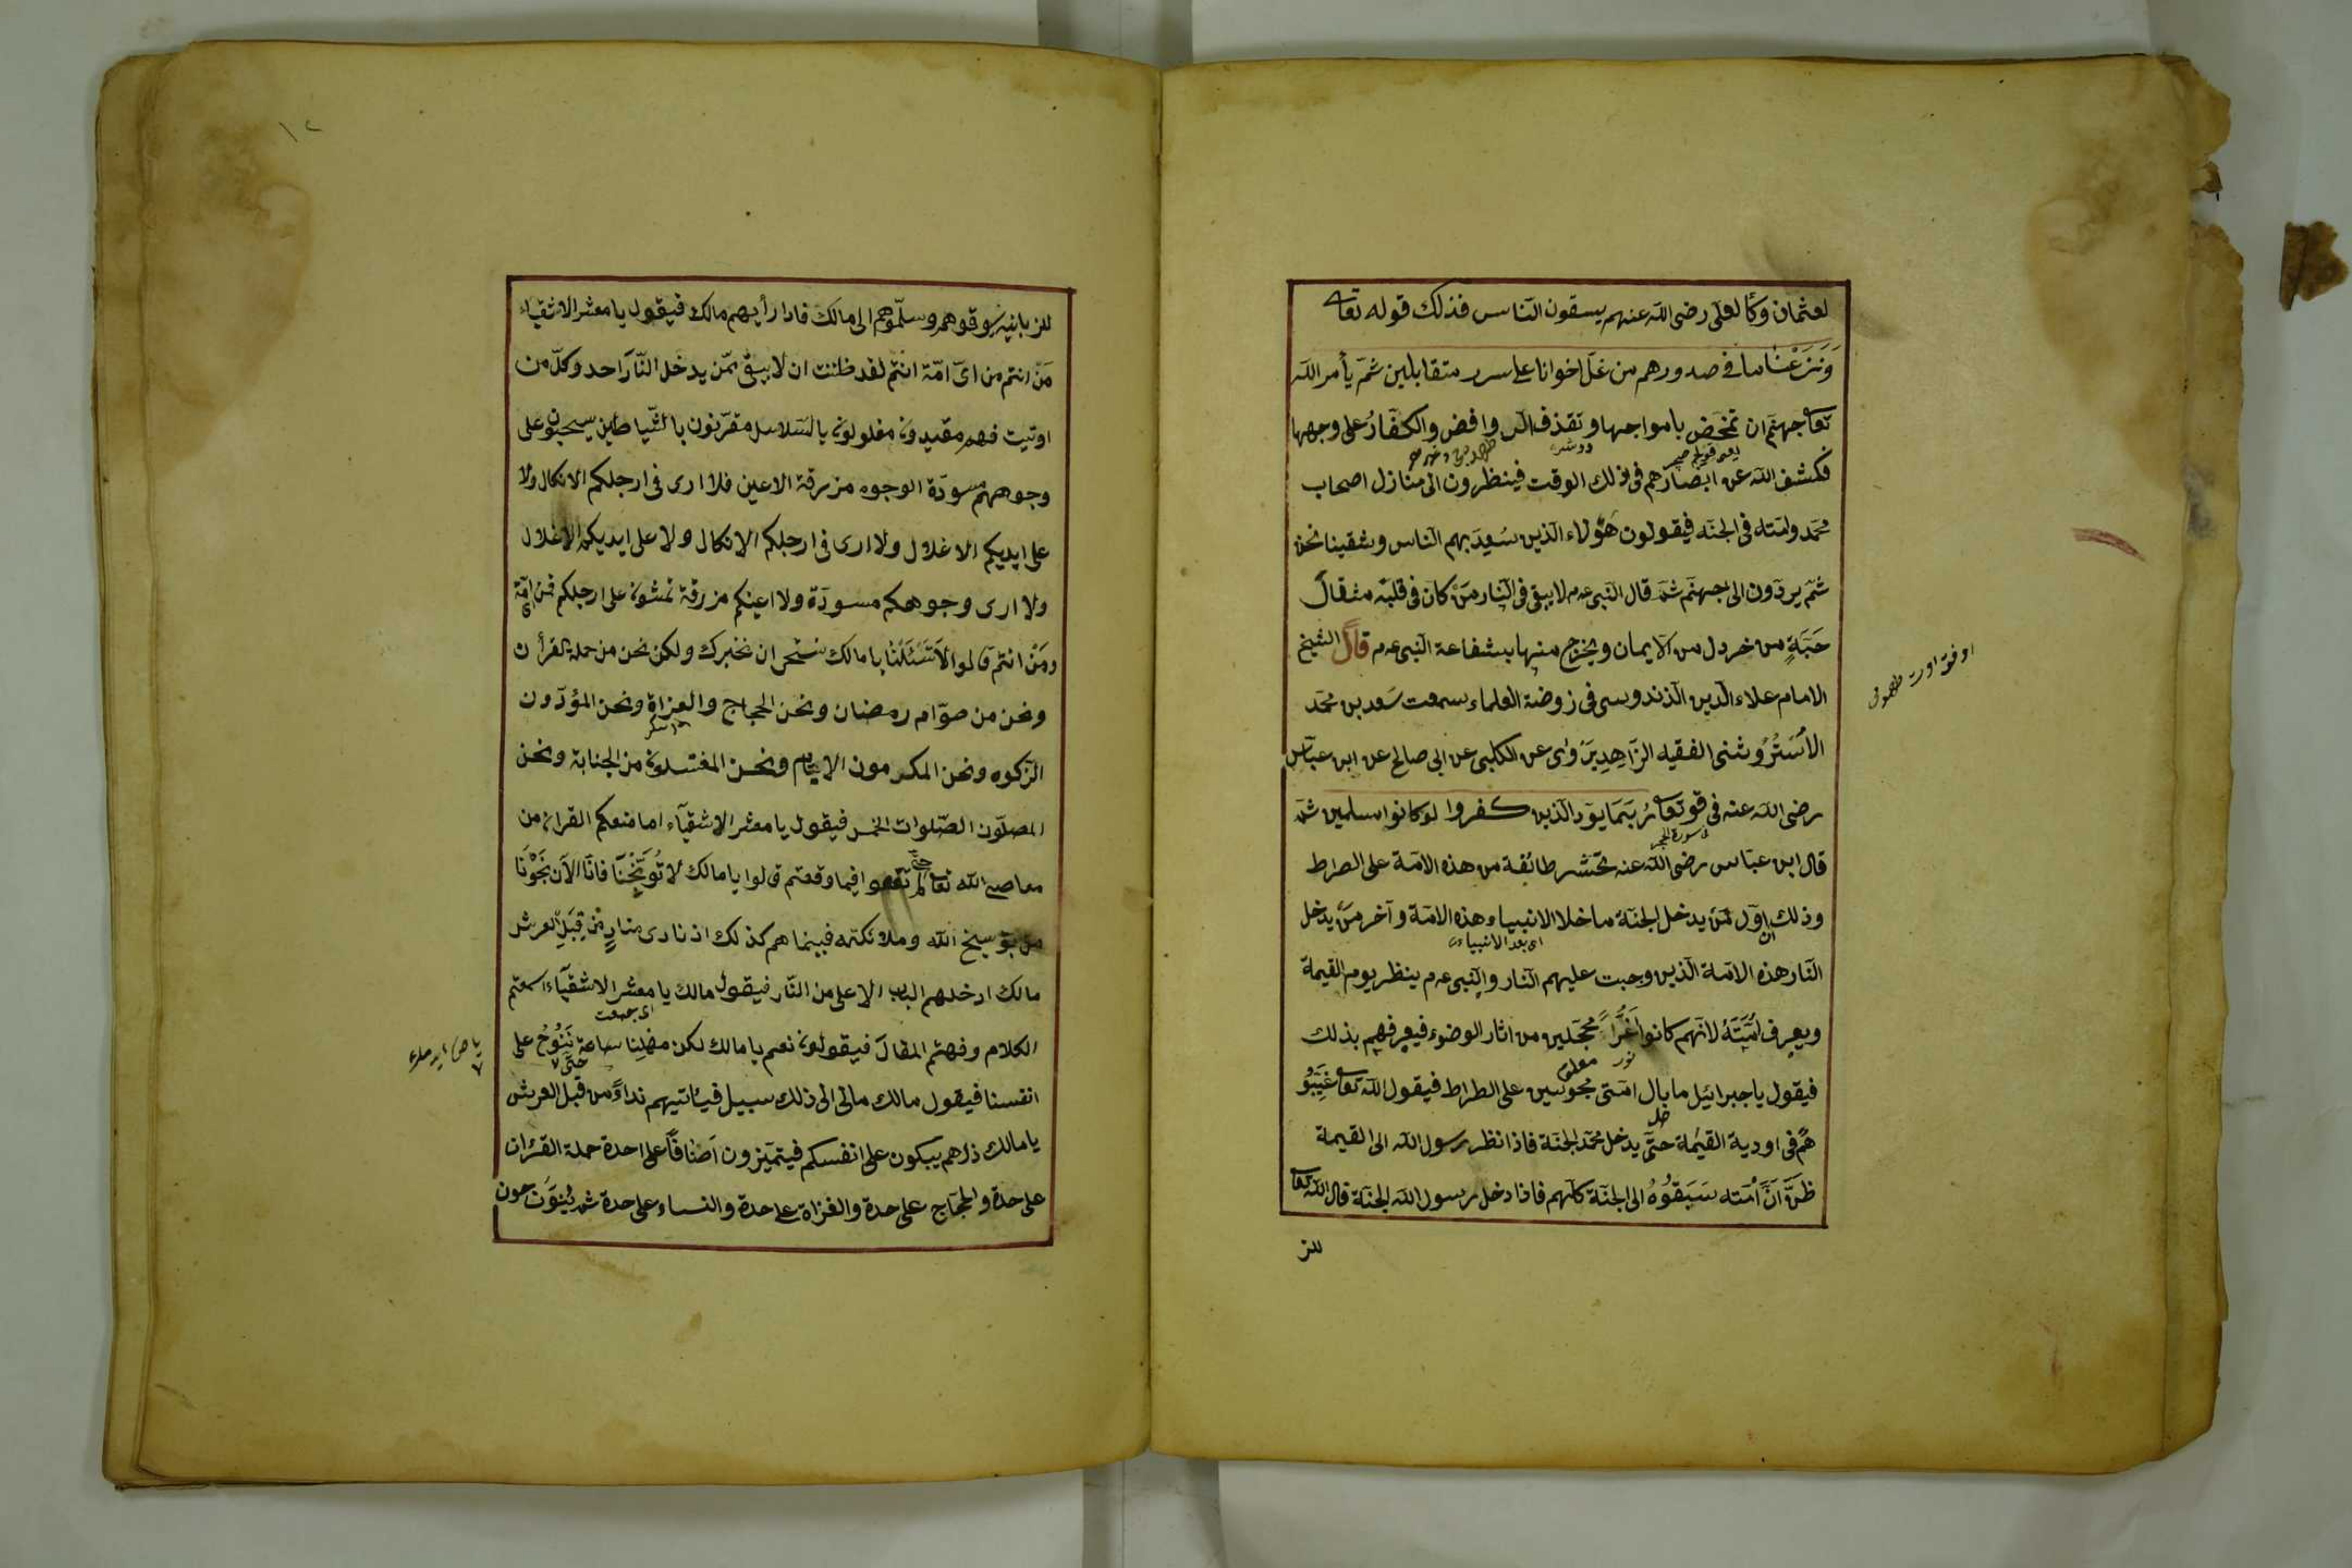 لعثمان وكأ لعلى رضى الله عنهم يسقون الناس فذلك قوله تعا
وَنَزَعْنَا ما فى صدورهم من غل اخوانا على سرر متقابلين ثم يأمر الله
تعا جهنم ان تمخض بامواجها وتقذف الروافض والكفار على وجهها
فكشف الله عن ابصارهم فى ذلك الوقت فينظرون الى منازل اصحاب
محمد وامته فى الجنة فيقولون هؤلاء الذين سُعِدَ بهم الناس وشقينا نحن
ثم يردون الى جهنم ثم قال النبى عم لا يبقى فى النار من كان فى قلبه مثقال
حَبَّةٍ من خردل من الايمان ويخرج منها بشفاعة النبى عم قال الشيخ
الامام علاء الدين الزندوسى فى روضة العلماء سمعت سعد بن محمد
الاُسْتُرُوشنى الفقيه الزَّاهِد يَرْوى عن الكلبى عن ابى صالح عن ابن عباس
رضى الله عنه فى قو تعا رُبَمَا يود الذين كفروا لو كانوا مسلمين ثم
فى سورة الحجر
قال ابن عباس رضى الله عنه تحشر طائفة من هذه الامة على الصراط
وذلك ان اول من يدخل الجنة ما خلا الانبياء هذه الامة وآخر من يدخل
اى بعد الانبياء
النار هذه الامة الذين وجبت عليهم النار والنبى عم ينظر يوم القيمة
ويعرف اُمَّتَهُ لانهم كانوا غُرًّا محجلين من اثار الوضوء فيعرفهم بذلك
نور
فيقول يا جبرائيل ما بال امتى محبوسين على الصراط فيقول الله تعا غَيِّبُو
هُمْ فى اودية القيمة حتى يدخل محمد الجنة فاذا نظر رسول الله الى القيمة
ظَنَّ اَنَّ اُمَّته سَبَقُوهُ الى الجنة كلهم فاذا دخل رسول الله الجنة قال الله تعا
للز
١٢
للزبانية سوقوهم وسلموهم الى مالك فاذا رأيهم مالك فيقول يا معشر الاشقياء
مَنْ انتم من اى امة انتم لقد ظننت ان لا يبقى ممن يدخل النار احد وكل من
اوتيت فهم مقيدون مغلولون بالسلاسل مقرنون بالشياطين يسحبون على
وجوههم مسودة الوجوه مزرقة الاعين فلا ارى فى ارجلكم الانكال ولا
على ايديكم الاغلال ولا ارى فى ارجلكم الانكال ولا على ايديكم الاغلال
ولا ارى وجوهكم مسودة ولا اعينكم مزرقة تمشون على ارجلكم فمن اى امة
ومَنْ انتم قالوا لا تَسْئَلْنا يا مالك نستحى ان نخبرك ولكن نحن من حملة القرأن
ونحن من صوّام رمضان ونحن الحجاج والغزاة ونحن المؤدون
الزكوة ونحن المكرمون الايتام ونحن المغتسلون من الجنابة ونحن
المصلون الصلوات الخمس فيقول يا معشر الاشقياء اما منعكم القران من
معاصى الله تعا حتى لم تقعوا فيما وقعتم قالوا يا مالك لا تُوَبِّخْنَا فانا الان نَجَوْنَا
من توبيخ الله وملائكته فبينما هم كذلك اذ نادى منادٍ من قِبَلِ العرش
مالك ادخلهم الباب الاعلى من النار فيقول مالك يا معشر الاشقياء اسمعتم
الكلام وفهتم المقال فيقولون نعم يا مالك لكن مهلنا ساعة حتى نَنُوحُ على
انفسنا فيقول مالك مالى الى ذلك سبيل فيأتيهم نداءً من قبل العرش
يا مالك ذرهم يبكون على انفسكم فيتميزون اَصْنَافًا على احدة حملة القران
على حدة والحجاج على حدة والغزاة على حدة والنساء على حدة ثم يُنَوِّحون